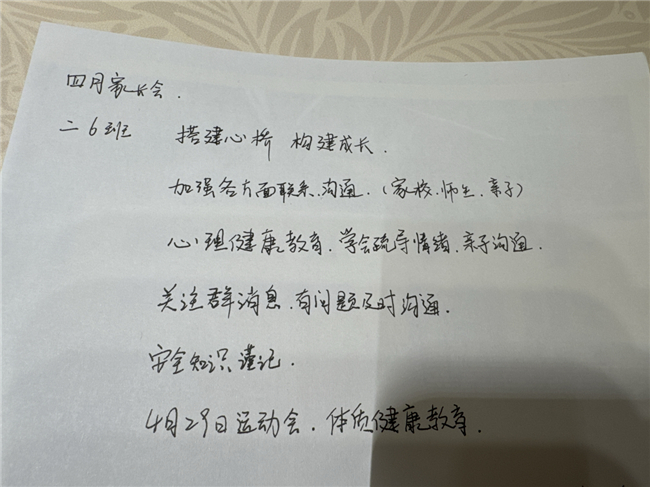 四月家长会.
二6班 搭建心桥 构建成长.
加强各方面联系、沟通.(家校、师生、亲子)
心理健康教育、学会疏导情绪、亲子沟通.
关注群消息、有问题及时沟通.
安全知识谨记.
4月29日运动会、体质健康教育.